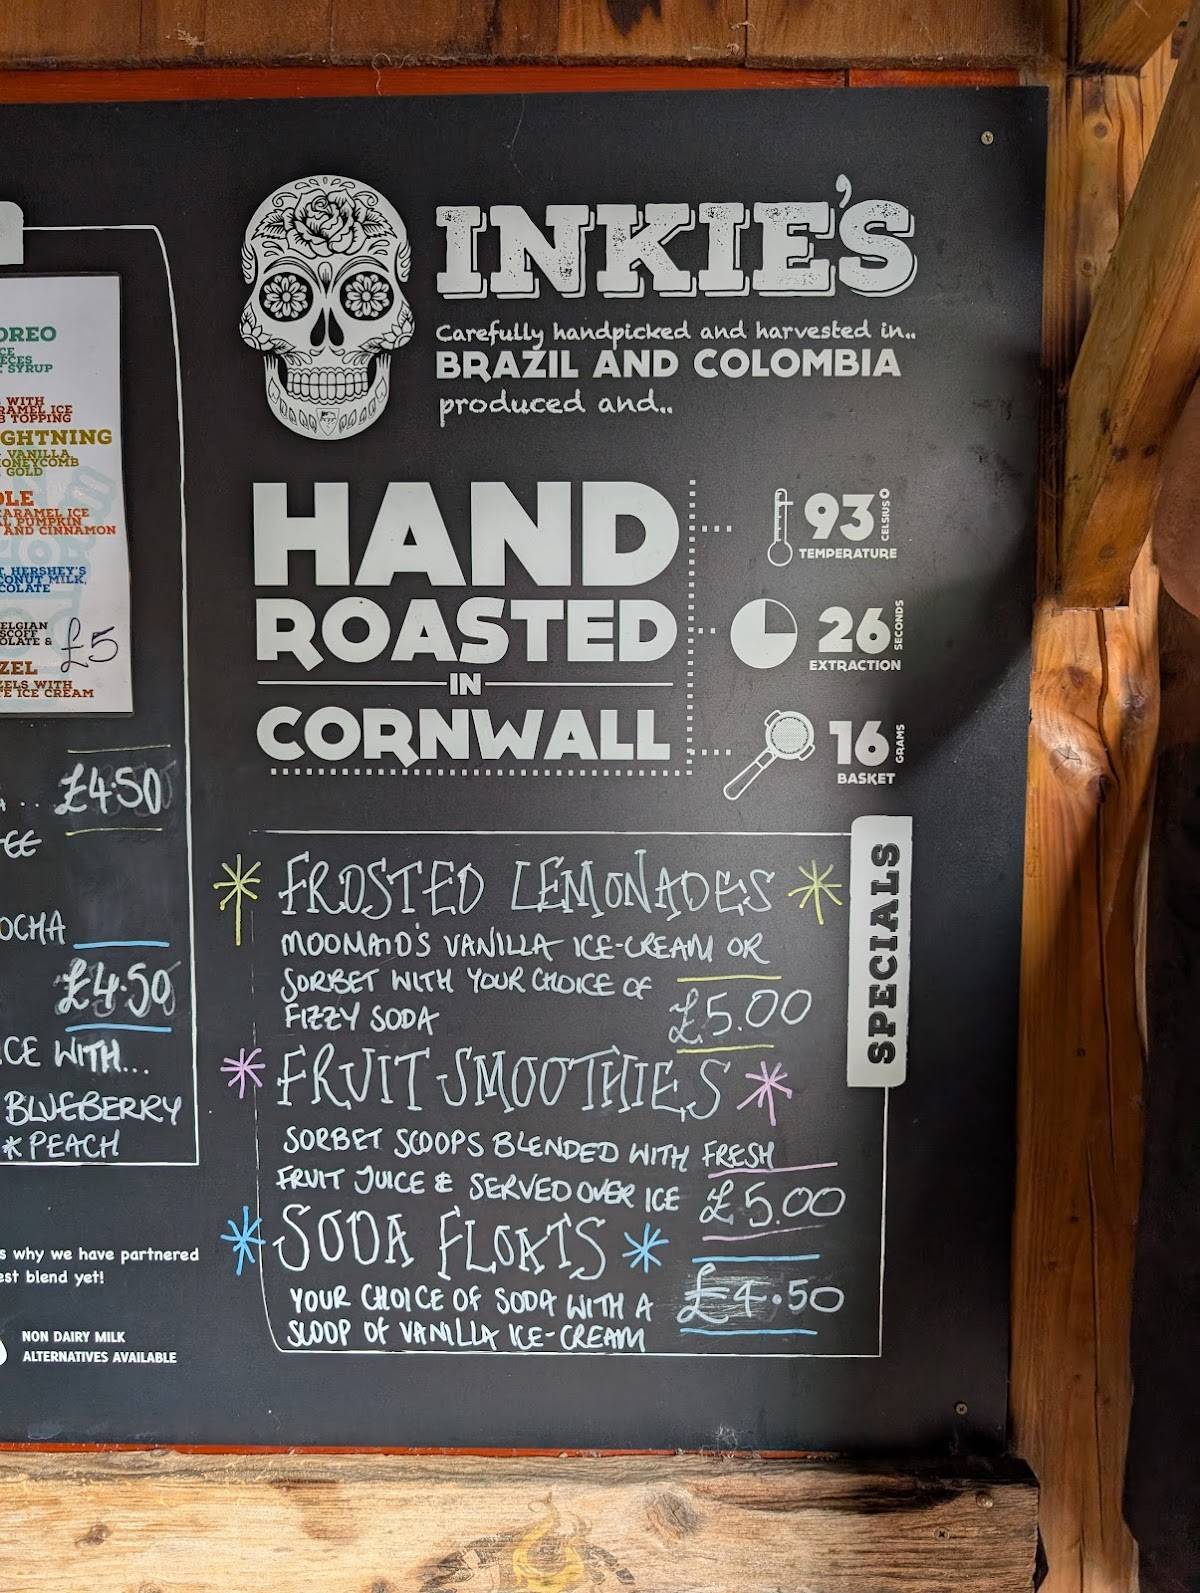 OREO
SYRUP
WITH
TOPPING
VANILLA
GOLD
PUMPKIN
AND CINNAMON
HERSHEY'S
MILK,
£5
WITH
ICE CREAM
£4.50
OCHA
£4.50
WITH...
BLUEBERRY
* PEACH
why we have partnered
blend yet!
NON DAIRY MILK
ALTERNATIVES AVAILABLE
INKIE'S
Carefully handpicked and harvested in..
BRAZIL AND COLOMBIA
produced and..
HAND
ROASTED
IN
CORNWALL
93 CELSIUS
TEMPERATURE
26 SECONDS
EXTRACTION
16 GRAMS
BASKET
SPECIALS
* FROSTED LEMONADES *
MOOMAID'S VANILLA ICE-CREAM OR
SORBET WITH YOUR CHOICE OF
FIZZY SODA
£5.00
* FRUIT SMOOTHIES *
SORBET SCOOPS BLENDED WITH FRESH
FRUIT JUICE & SERVED OVER ICE
£5.00
* SODA FLOATS *
YOUR CHOICE OF SODA WITH A
SCOOP OF VANILLA ICE-CREAM
£4.50